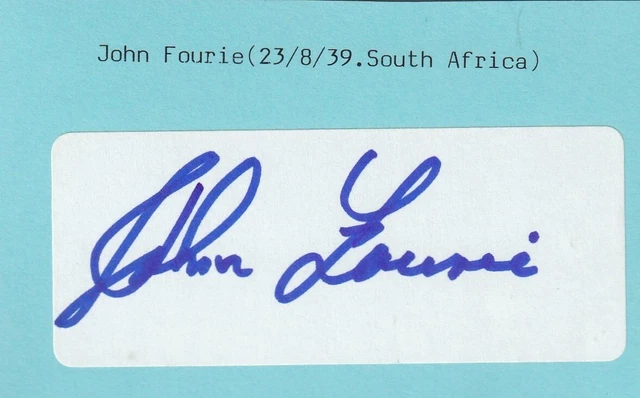 John Fourie(23/8/39.South Africa)
John Fourie